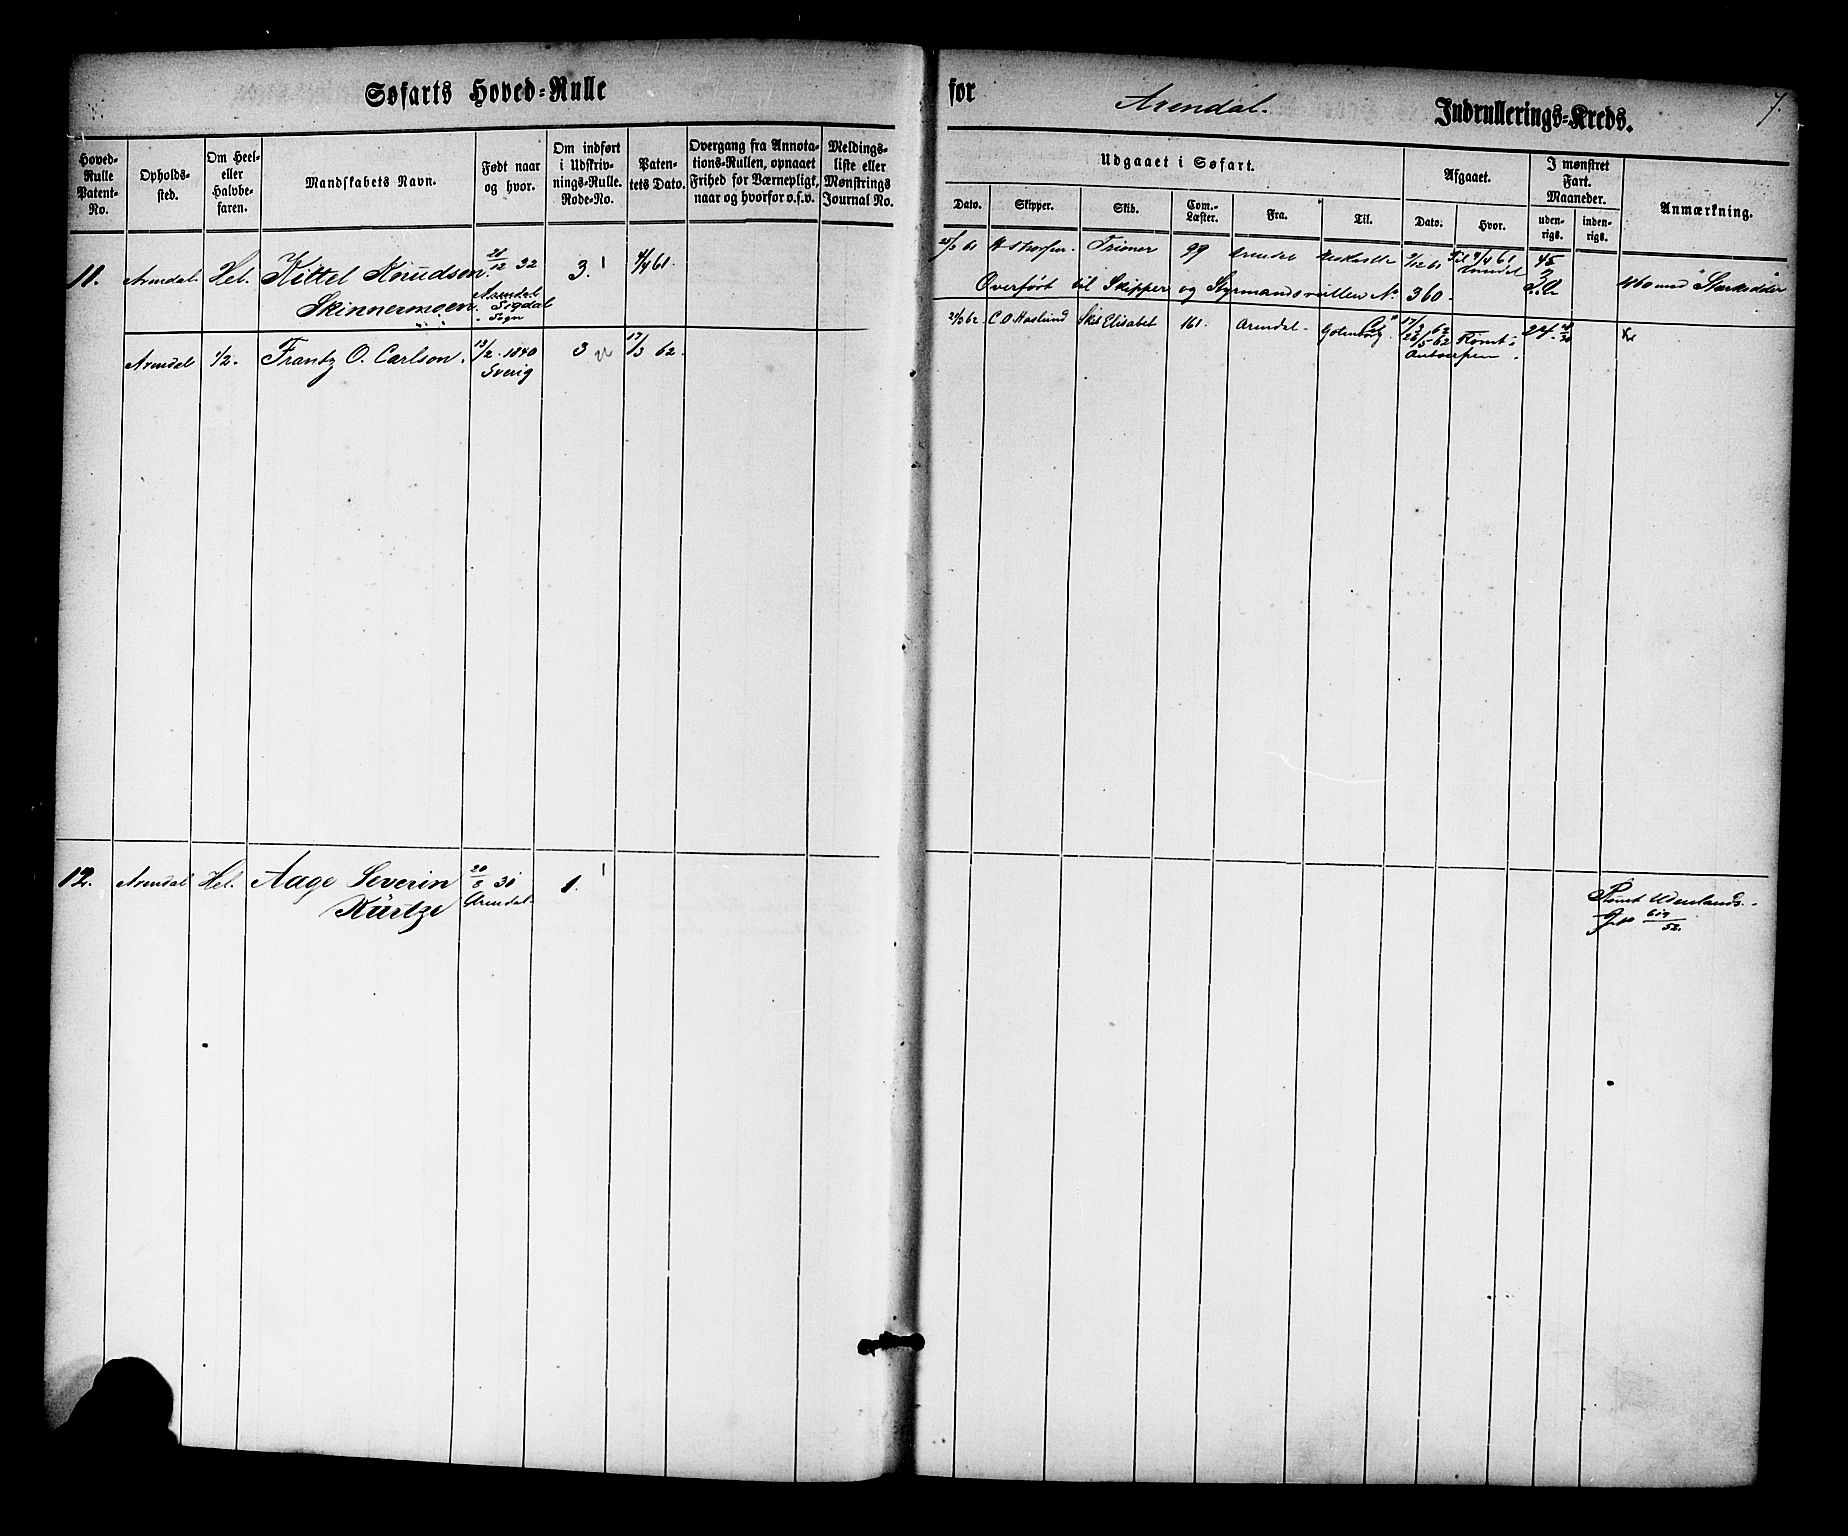 Søfarts Hoved=Rulle for Arendal. Indrullerings=Kreds. 7.
Hoved-Rulle Patent-No.
Opholds-sted.
Om Heel- eller Halvbe-faren.
Mandskabets Navn.
Født naar og hvor.
Om indført i Udskriv-nings-Rulle. Rode-No.
Paten-tets Dato.
Overgang fra Annota-tions-Rullen, opnaaet Frihed for Værnepligt, naar og hvorfor o.s.v.
Meldings-liste eller Mønstrings Journal No.
Udgaaet i Søfart.
Dato. Skipper. Skib. Com.-Læster. Fra. Til.
Afgaaet.
Dato. Hvor.
I mønstret Fart. Maaneder.
uden-rigs. inden-rigs.
Anmærkning.
11. Arendal. Hel. Kittel Knudsen. 26/12 32 3. 1 4/4 61.
Skinnermoen. Arendal Sogdal Sogn
Trioner 99 Arendal 61 45
Overført til Skipper og Styrmandsrullen No. 360.
Arendal 1/2. Frantz O. Carlson. 13/2 1840 3 17/3 62.
Sverig
21/3 62 C. O. Haslund Skb Elisabet 161. Arendal 17/3 62 24
26/5 62 Rømt i
Antwerpen.
12. Arendal Hel. Aage Severin 20/8 31 1. 1
Kürtze Arendal.
Rømt Udenlands.